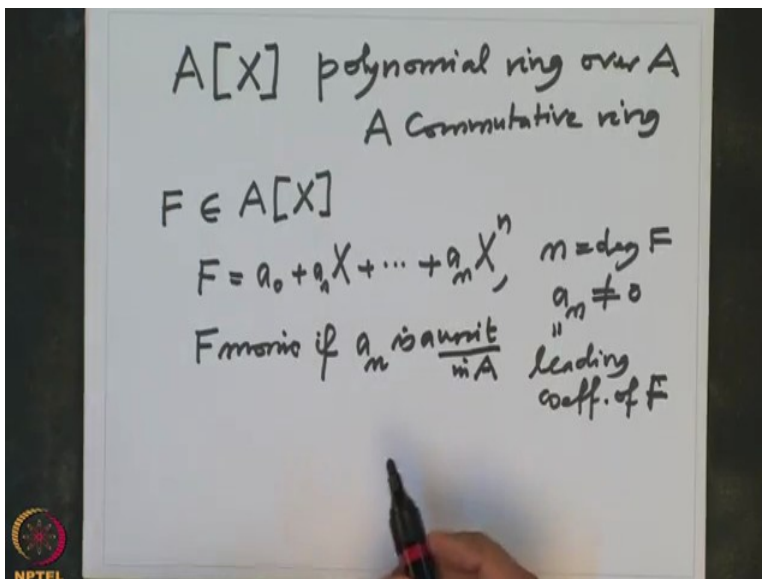 A[X] polynomial ring over A
A Commutative ring
F ∈ A[X]
F = a₀ + a₁X + ⋯ + aₙXⁿ, n = deg F
aₙ ≠ 0
F monic if aₙ is a unit in A
"
leading
coeff. of F
NPTEL